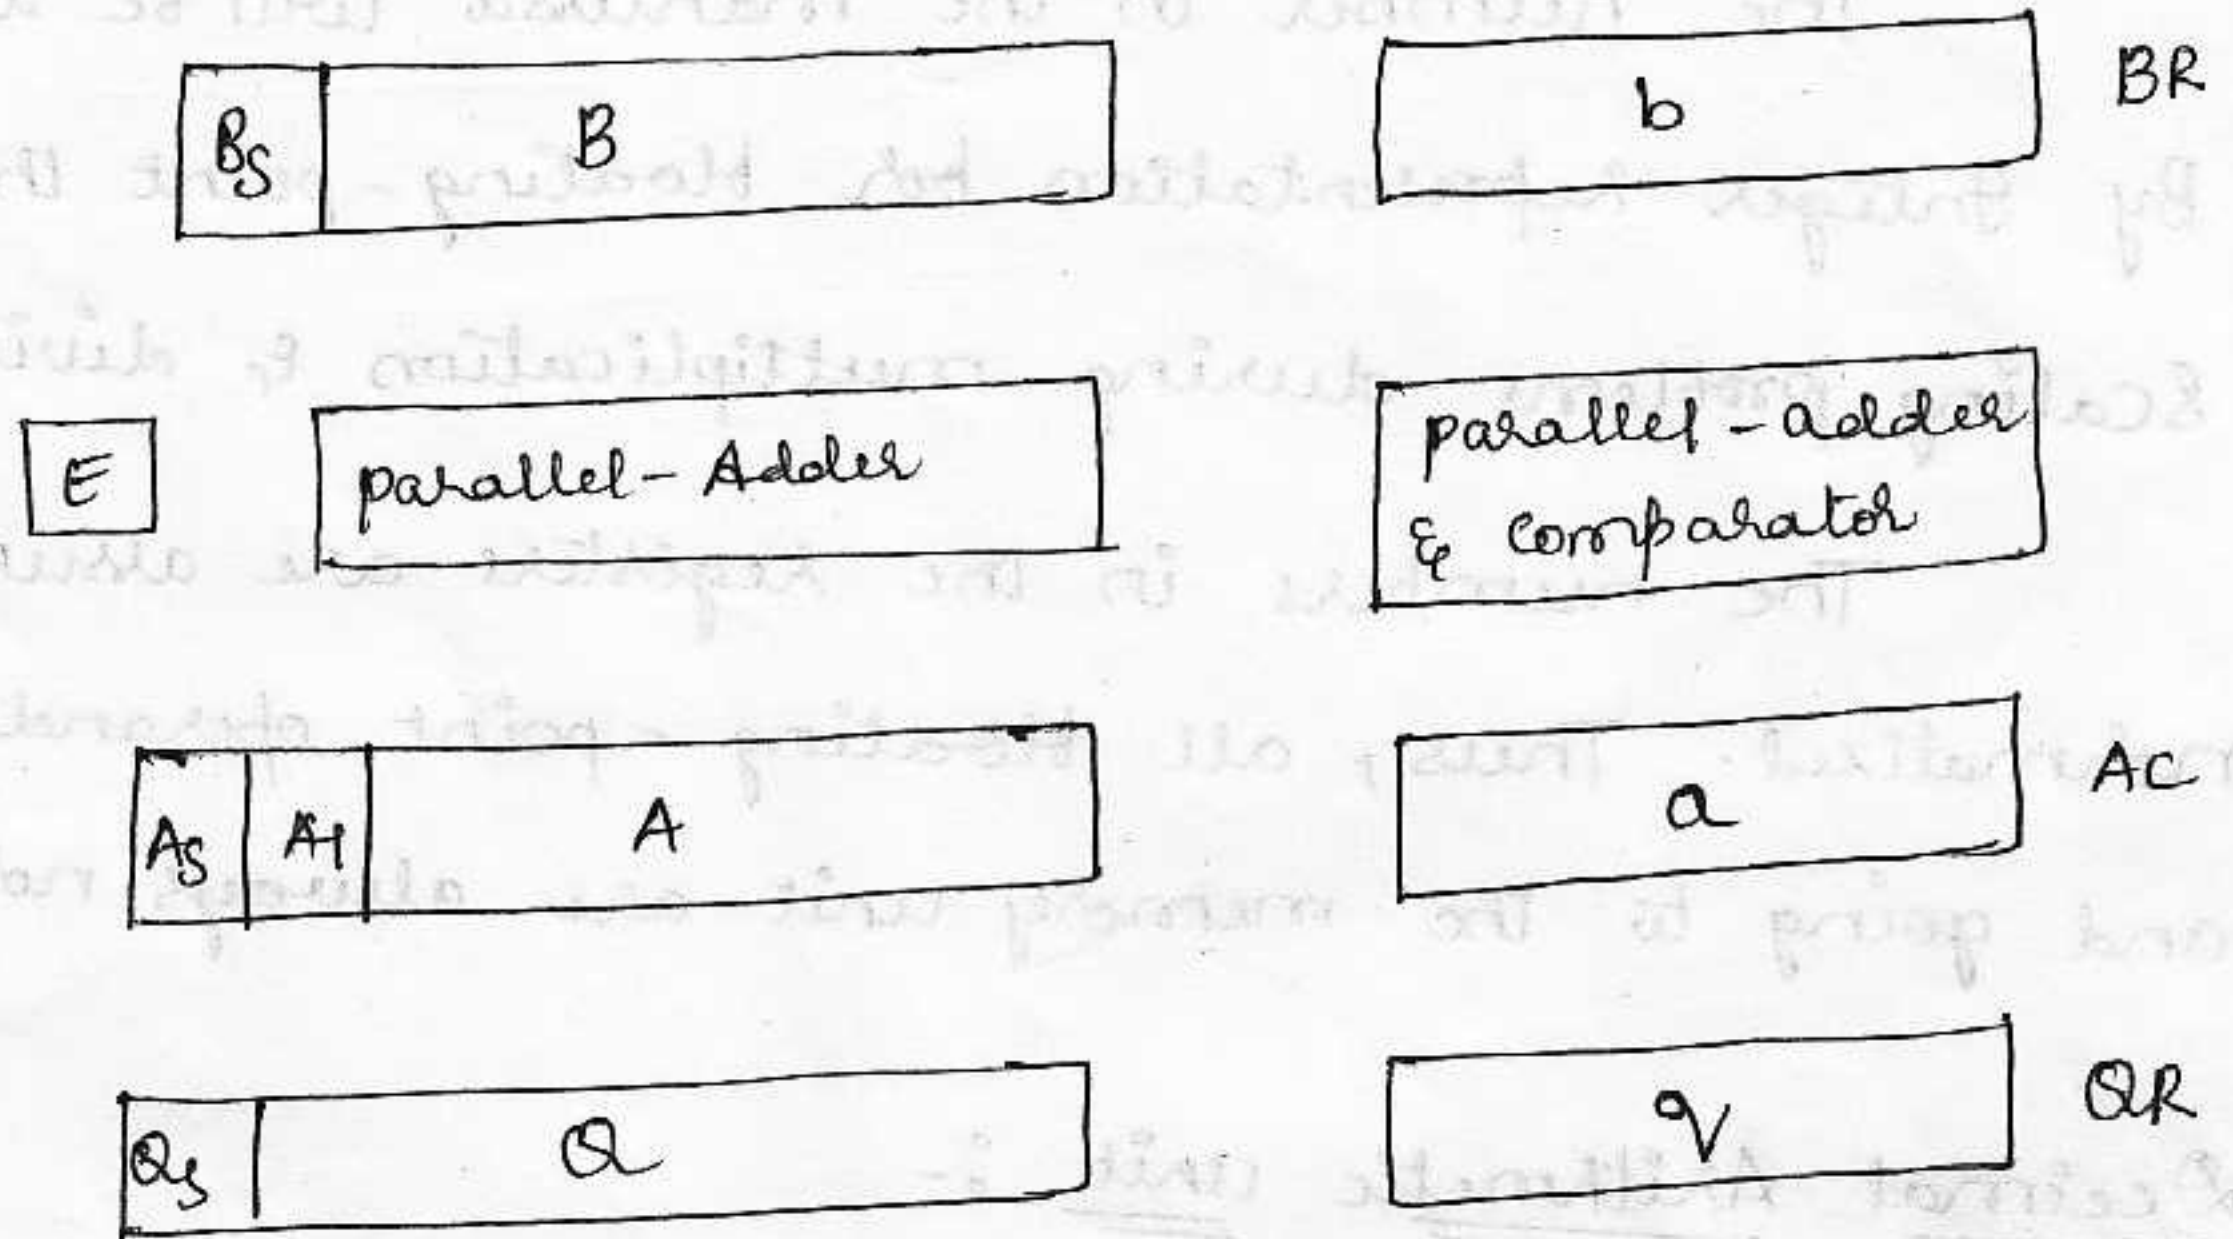 Bs B b BR
E parallel - Adder parallel - adder
& comparator
As A1 A a AC
Qs Q q QR